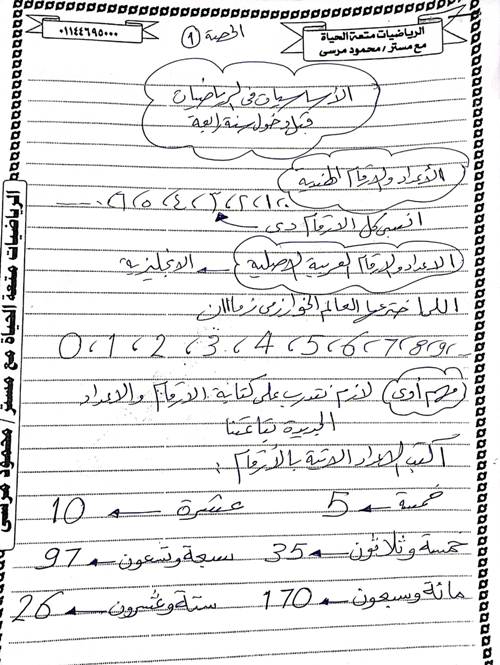 الرياضيات متعة الحياة
مع مستر / محمود مرسى
الحصة (1)
٠١١٤٤٦٩٥٠٠٠
الأساسيات فى الرياضيات
قبل دخول سنة رابعة
الأعداد والارقام الهندية
٠، ١، ٢، ٣، ٤، ٥، ٦، ...
انسى كل الارقام دى
الاعداد والارقام العربية الاصلية ← الانجليزية
اللى اخترعها العالم الخوارزمى زماااان
0، 1، 2، 3، 4، 5، 6، 7، 8، 9،
مهم أوى لازم نتدرب على كتابة الارقام والاعداد
الجديدة بتاعتنا
أكتب الاعداد الاتية بالأرقام :
خمسة ← 5 عشرة ← 10
خمسة وثلاثون ← 35 سبعة وتسعون ← 97
مائة وسبعون ← 170 ستة وعشرون ← 26
الرياضيات متعة الحياة مع مستر / محمود مرسى